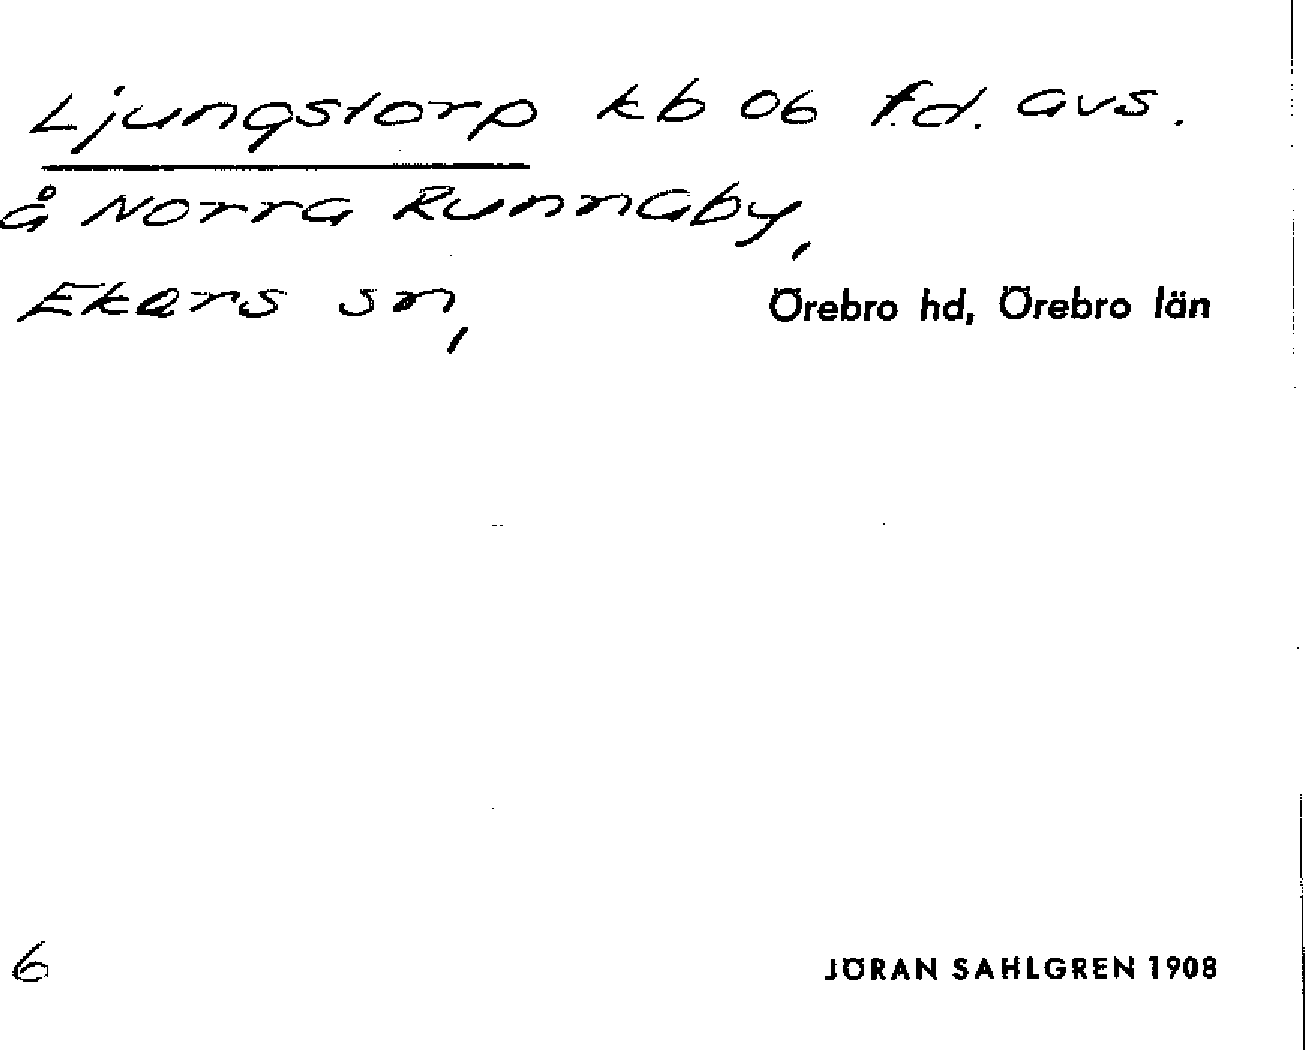 Ljungstorp kb 06 f.d. avs.
å Norra Runnaby,
Ekers sn, Örebro hd, Örebro län
6
JÖRAN SAHLGREN 1908